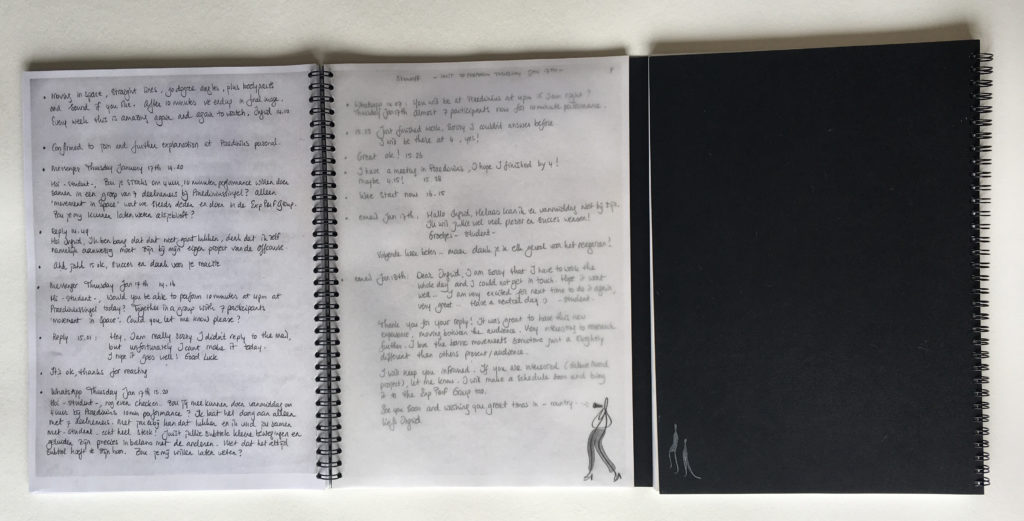 • Moving in space, straight lines, 90 degree angles, plus bodyparts
and sound if you like. After 10 minutes we end up in final image.
Every week this is amazing again and again to watch, Ingrid 14.10
• Confirmed to join and further explanation at Praedinius personal.
• Messenger Thursday January 17th 14.20
Hoi - student -, Zou je straks om 4 uur, 10 minuten performance willen doen
samen in een groep van 7 deelnemers bij Praediniussingel? Alleen
'movement in space' wat we steeds deden en doen in de Exp Perf Group.
Zou je mij kunnen laten weten alsjeblieft?
• Reply 14.49
Hoi Ingrid, Ik ben bang dat dat niet gaat lukken, denk dat ik zelf
namelijk aanwezig moet zijn bij mijn eigen project van de offcourse
• Ahh, jahh is ok, succes en dank voor je reactie
• Messenger Thursday Jan 17th 14.16
Hi - student -, Would you be able to perform 10 minutes at 4pm at
Praediniussingel today? Together in a group with 7 participants
'movement in Space'. Could you let me know please?
• Reply 15.01: Hey, I am really sorry I didn't reply to the mail,
but unfortunately I cant make it today.
I hope it goes well! Good Luck
• It's ok, thanks for reacting
• WhatsApp Thursday Jan 17th 13.20
Hoi - student -, nog even checken. Zou jij mee kunnen doen vanmiddag om
4 uur bij Praedinius 10 min performance? Ik laat het doorgaan alleen
met 7 deelnemers. Met jou erbij kan dat lukken en ik vind jou samen
met - student - echt heel sterk! Juist jullie subtiele kleine bewegingen en
geluiden zijn precies in balans met de anderen. Niet dat het altijd
subtiel hoeft te zijn hoor. Zou je mij willen laten weten?
- Thursday Jan 17th -
• Whatsapp 14.07. You will be at Praedinius at 4pm if I am right?
Thursday Jan 17th almost 7 participants now for 10 minute performance.
• 15.15 Just finished work. Sorry I couldn't answer before
I will be there at 4, yes!
• Great ok! 15.26
• I have a meeting in Praedinius, I hope I finished by 4!
maybe 4.15! 15.38
• We start now 16.15
• email Jan 17th. Hallo Ingrid, Helaas kan ik er vanmiddag niet bij zijn.
Ik wil jullie wel veel plezier en succes wensen!
Groetjes - student -
Volgende keer beter... maar dank je in elk geval voor het reageren!
• email Jan 18th. Dear Ingrid, I am sorry that I have to work the
whole day and I could not get in touch. Hope it went
well... I am very excited for next time to do it again,
very great... Have a neutral day :) - student -
Thank you for your reply! It was great to have this new
experience, moving between the audience. Very interesting to research
further. I love the same movements sometime just a slightly
different than others present/audience.
I will keep you informed. If you are interested
project), let me know. I will make a schedule soon and bring
it to the Exp Perf Group too.
See you soon and wishing you great times in - country -
Ingrid